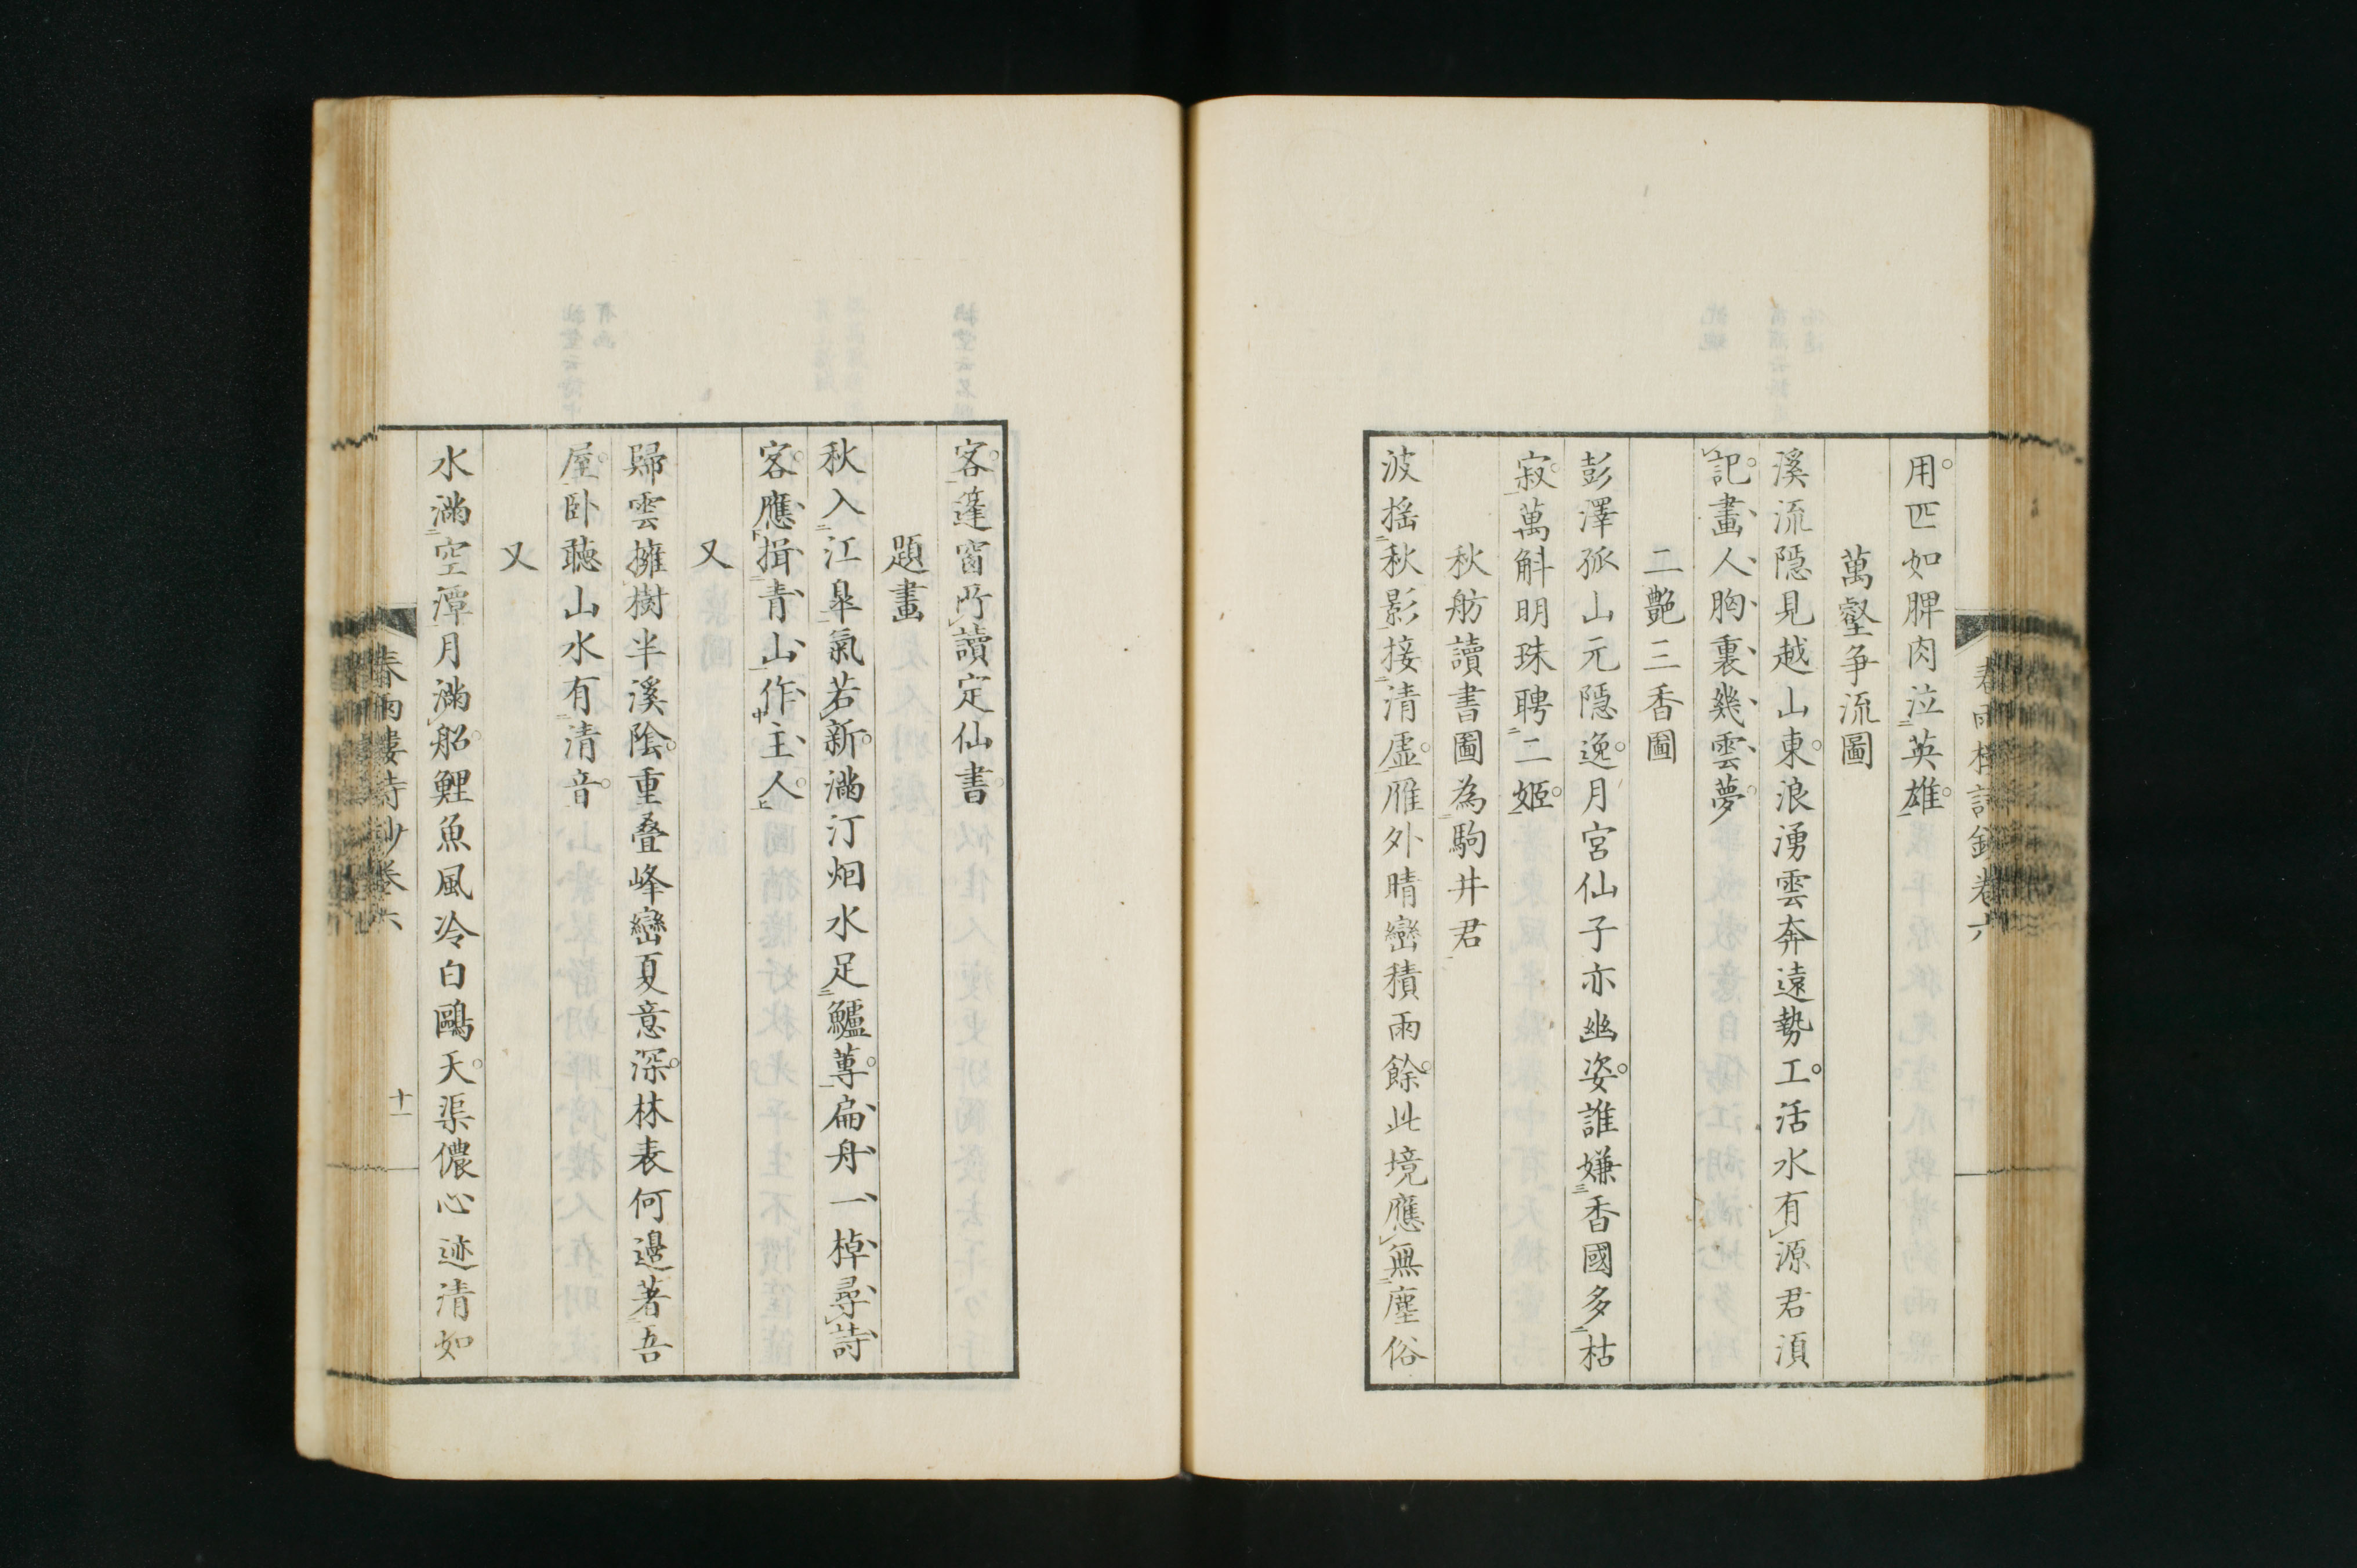 用匹如脾肉泣英雄
萬壑争流圖
溪流隱見越山東浪湧雲奔遠勢工活水有源君湏
記畫人胸裏幾雲夢
二艶三香圖
彭澤孤山元隱逸月宮仙子亦幽姿誰嫌香國多枯
寂萬斛明珠聘二姬
秋舫讀書圖為駒井君
波揺秋影接清虛雁外晴巒積雨餘此境應無塵俗
客蓬窗所讀定仙書
題畫
秋入江皐氣若新滿汀烟水足鱸蓴扁舟一棹尋詩
客應揖青山作主人
又
歸雲擁樹半溪陰重疊峰巒夏意深林表何邊著吾
屋卧聽山水有清音
又
水滿空潭月滿船鯉魚風冷白鷗天渠儂心迹清如
春雨樓詩鈔卷六
十一